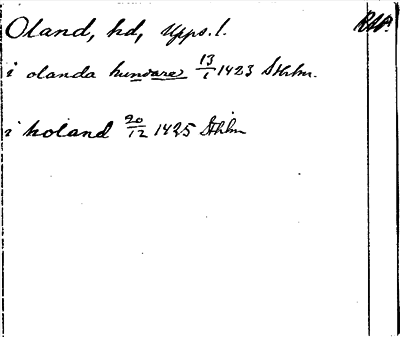 Oland, hd, Upps. l. RAP.
i olanda hundare 13/1 1423 Sthlm.
i holand 20/12 1425 Sthlm